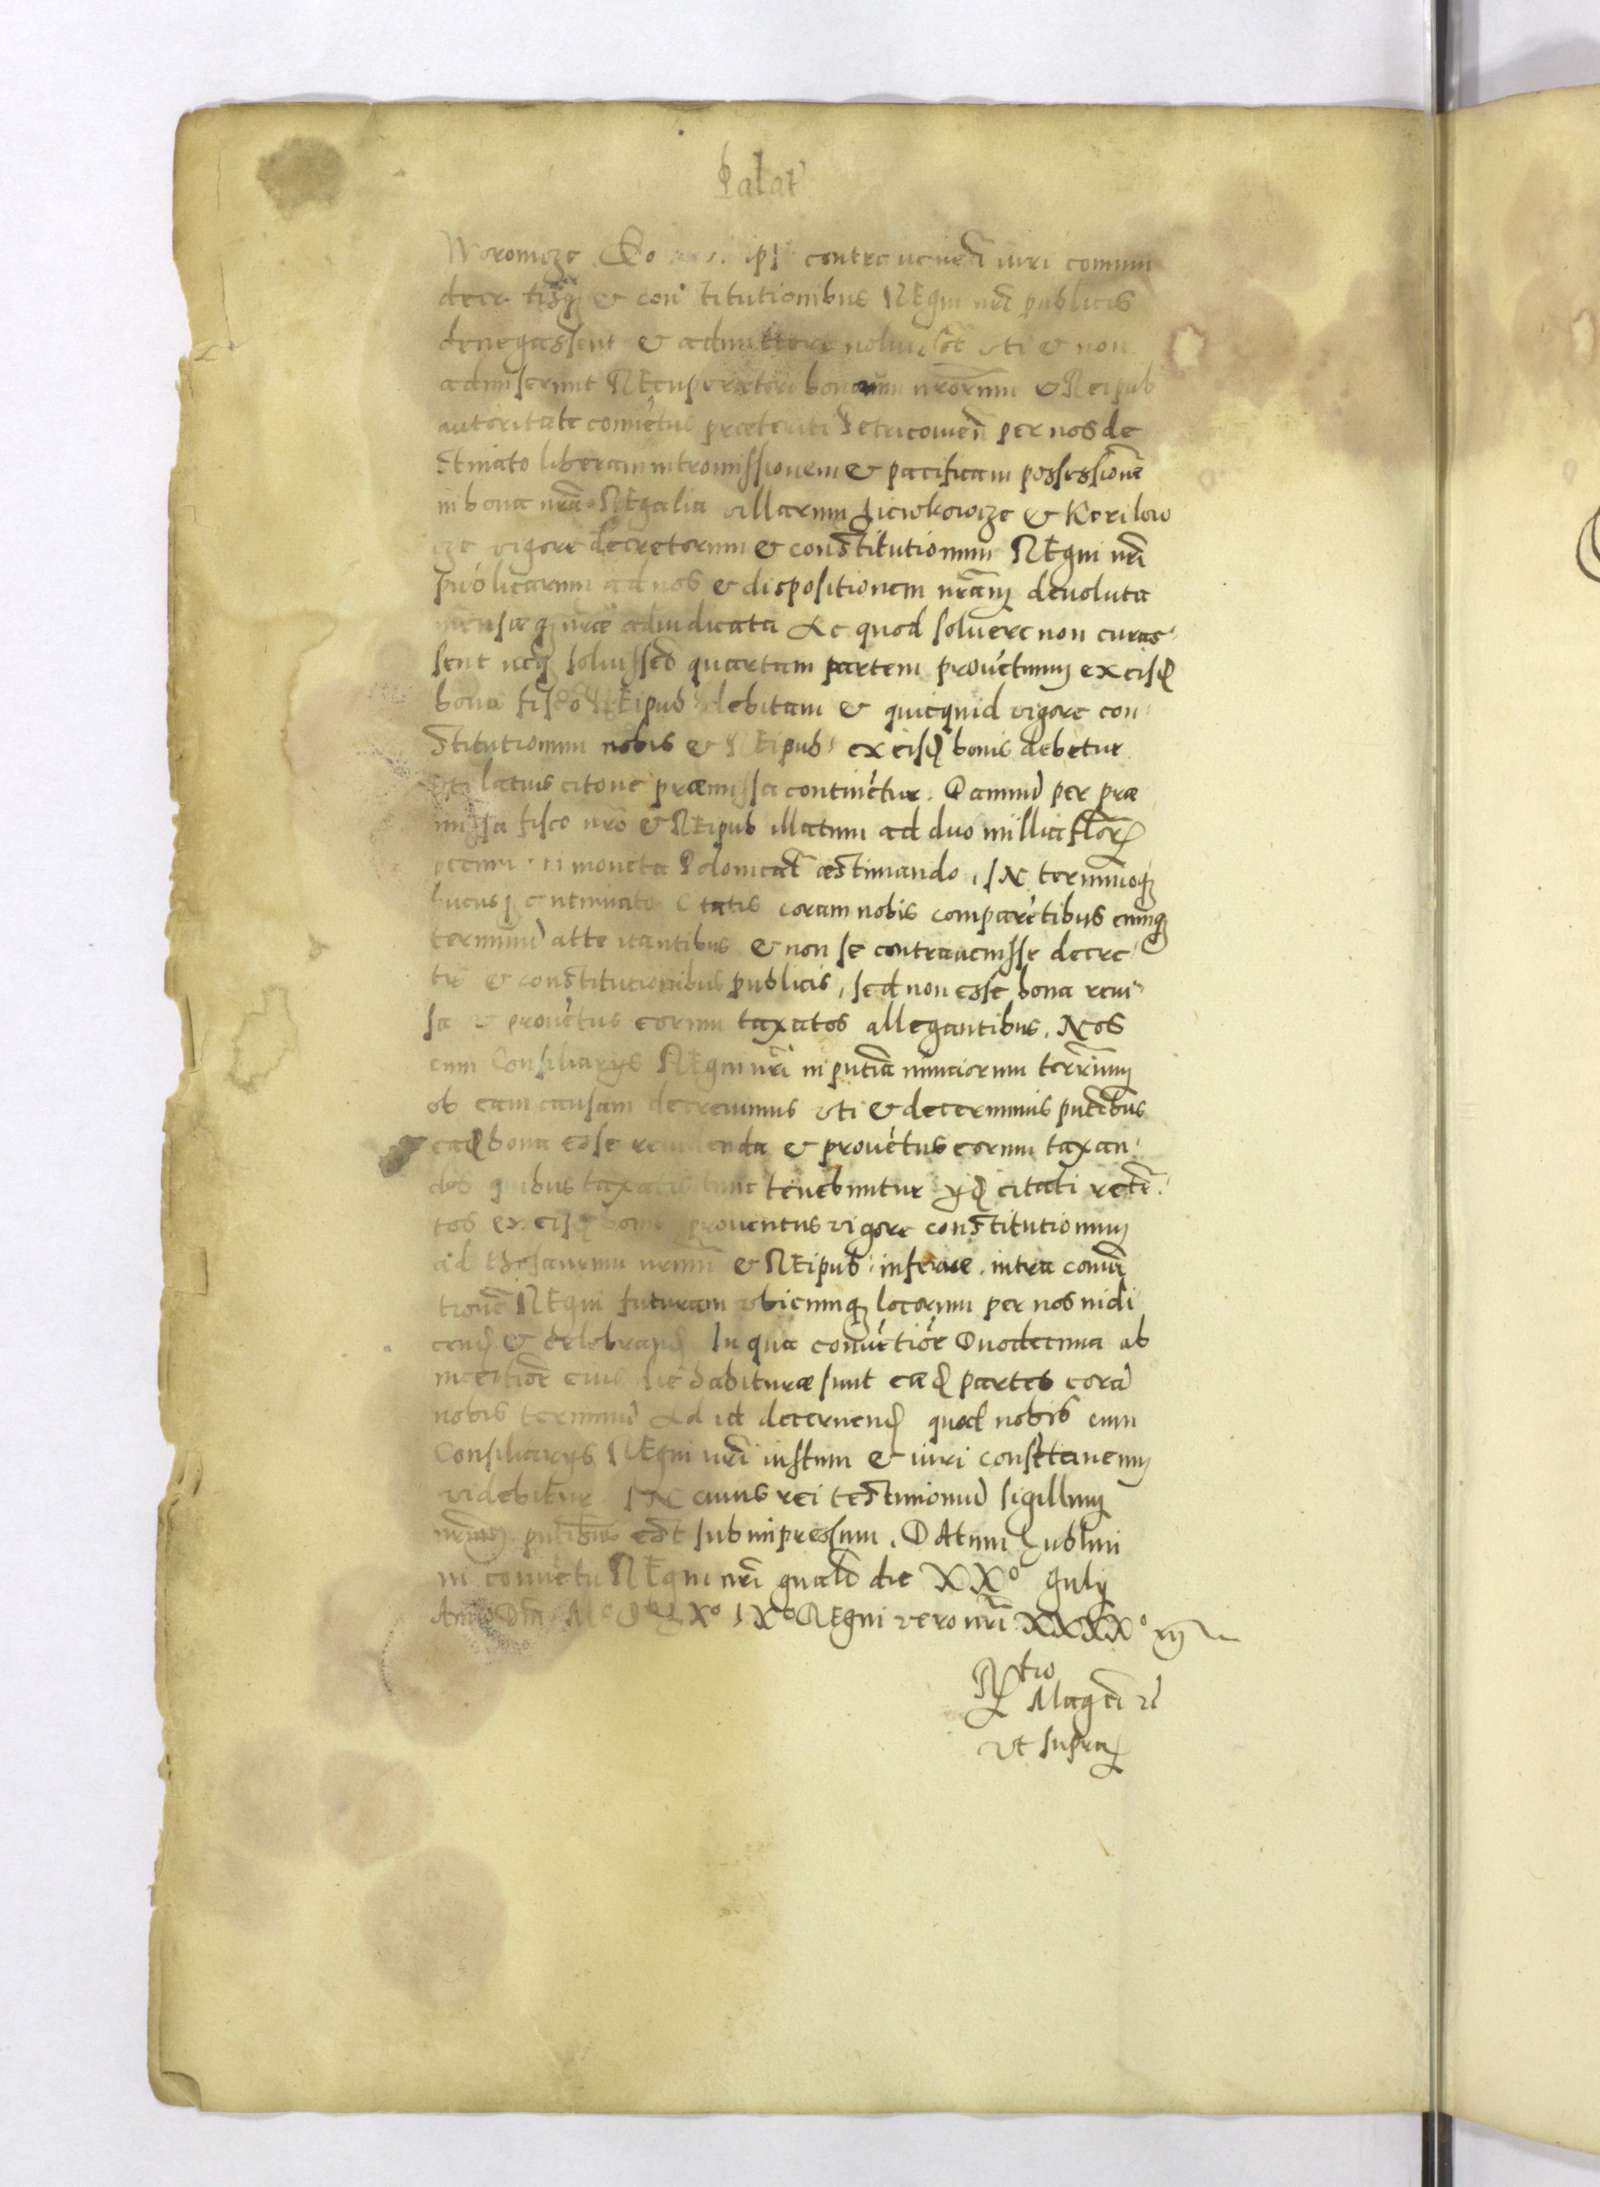 Palat
Woromcze Eo ipsi contra venirent iuri comuni
decretisq et constitutionibus REgni nri publicis
denegassent et admittere noluissent uti et non
admiserunt REcuperatori bonorum nrorum et Reipub
autoritate conuetus præteriti Petricouien per nos de
stinato liberam intromissionem et pacificam possessione
in bona nra REgalia villarum Ziewkowize et Korilow
ize vigore decretorum et constitutionum REgni nri
publicarum ad nos et dispositionem nram devoluta
mensæq nræ adiudicata Ac quod soluere non curas
sent neq soluissent quartam partem prouetuum ex eisd
bonis fisco REipub debitam et quicquid vigore con
stitutionum nobis et REipub ex eisd bonis debetur
uti latius citone præmissa continetur. Damnu per præ
missa fisco nro et REipub illatum ad duo millia flor
pecuni in moneta Polonicat æstimando, IN terminoq
hucusq continuato Citatis coram nobis comparetibus eumq
terminu attentantibus et non se contravenisse decre
tis et constitutionibus publicis, sed non esse bona reui
sa et prouetus eorum taxatos allegantibus, Nos
cum Consiliarys REgni nri in pntia nunciorum terrarum
ob eam causam decreuimus uti et decernimus pntibus
ead bona esse reuidenda et prouetus eorum taxan
dos quibus taxatis tunc tenebuntur yd citati reten
tos ex eisd bonis prouentus vigore constitutionum
ad thesaurum nrum et REipub inferre intra conuen
tione REgni futuram ubicunq locorum per nos indi
cend et celebrand In qua conuetione Duodecima ab
inceptione eius die habituræ sunt eæd partes cora
nobis terminu Ad id decernend quod nobis cum
Consiliarys REgni nri iustum et iuri consetaneum
videbitur IN cuius rei testimoniu sigillum
nrum pntibus est subimpressum. DAtum Lublini
in conuetu REgni nri gnali die XXo July
Anno Dni Mo Do LXo IXo REgni vero nri XXXXo
Rtio
Magci
ut supra